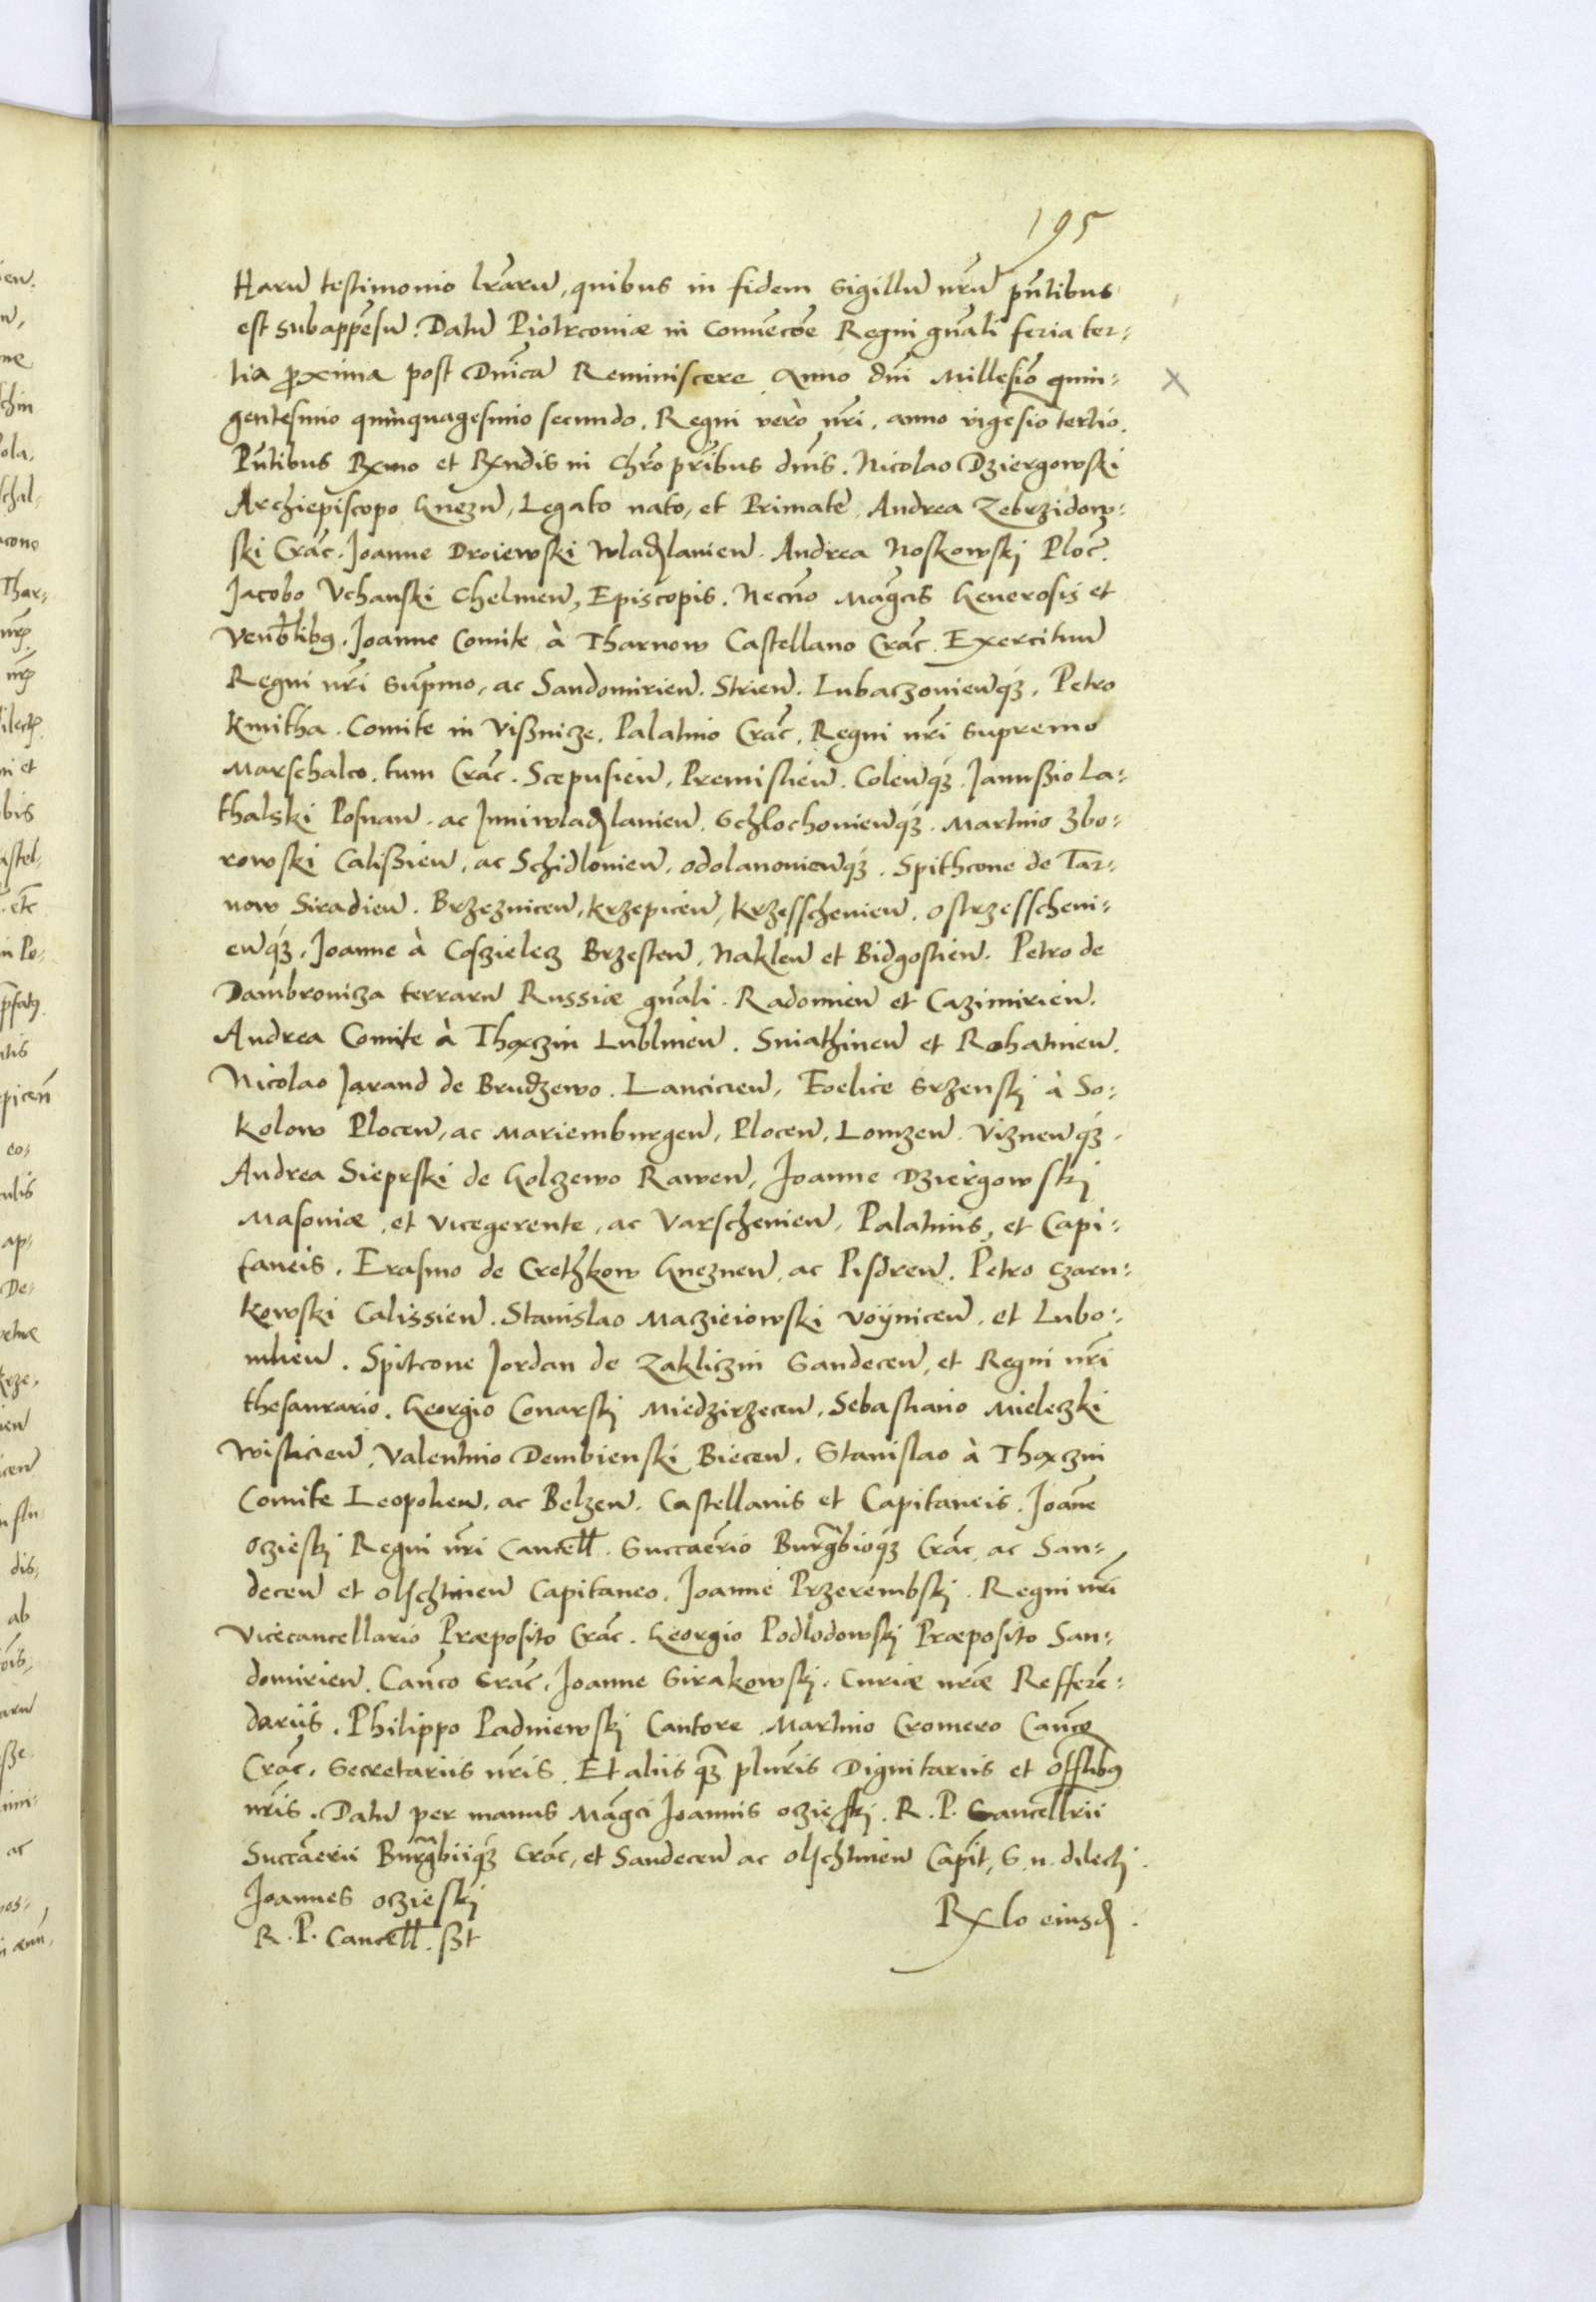 195
Harũ testimonio lrãrũ, quibus in fidem Sigillũ nrũ pñtibus
est subappẽsũ. Datũ Piotrconiæ in Convẽcõe Regni gñali feria ter:
tia proxima post Dnĩca Reminiscere Anno dnĩ Millesiõ quin:
gentesimo quinquagesimo secundo. Regni verò nrĩ. anno vigesio tertio.
Pñtibus Rxmo et Rxndis in Chrõ prĩbus dnĩs. Nicolao Dziergowski
Archiepiscopo Gnezñ, Legato nato, et Primate, Andrea Zebrzidow:
ski Crac̃. Joanne Droiewski Wladzlavieñ. Andrea Noskowskj Ploc̃.
Jacobo Vchanski Chelmeñ, Episcopis. Necnõ Mãgcis Generosis et
Venbl̃ibꝯ. Joanne Comite à Tharnow Castellano Crac̃. Exercituũ
Regni nrĩ Sup̃mo, ac Sandomirieñ. Strieñ. Lubaczovieñqꝫ. Petro
Kmitha. Comite in Vißnicze. Palatino Crac̃. Regni nrĩ Supremo
Marschalco. tum Crac̃. Scepusieñ, Premislieñ. Coleñqꝫ. Janußio La:
thalski Posnañ. ac Juniwladzlavieñ. Schlochovieñqꝫ. Martino Zbo:
rowski Calißieñ, ac Schidlovieñ. Odolanovieñqꝫ. Spithcone de Tar:
now Siradieñ. Brzezniceñ, Krzepiceñ, Krzesschevieñ. Ostrzesscheni:
eñqꝫ. Joanne à Coszielecz Brzesteñ, Nakleñ et Bidgostieñ. Petro de
Dambrowicza terrarũ Russiæ gñali. Radomieñ et Cazimirieñ.
Andrea Comite à Thãczin Lublineñ. Sniathineñ et Rohatineñ.
Nicolao Jarand de Brudzewo. Lancicieñ, Foelice Srzenskj à So:
kolow Ploceñ, ac Mariemburgeñ, Ploceñ, Lomzeñ. Vizneñqꝫ.
Andrea Sieprski de Golzewo Raweñ, Joanne Dziergowskj
Masoviæ, et vicegerente, ac Varschevieñ, Palatinis, et Capi:
taneis. Erasmo de Crethkow Gnezneñ, ac Pisdreñ. Petro Czarn:
kowski Calissieñ. Stanislao Maczieiowski Voÿniceñ, et Lubo:
mlieñ. Spitcone Jordan de Zakliczin Sandeceñ, et Regni nrĩ
thesaurario. Georgio Conarskj Miedzirzeceñ. Sebastiano Mieleczki
Wislicieñ, Valentino Dembienski Bieceñ. Stanislao à Thãczin
Comite Leopolieñ, ac Belzeñ. Castellanis et Capitaneis. Joãne
Oczieskj Regni nrĩ Cancell̃. Succaẽrio Burgrãbioqꝫ Crac̃, ac San:
deceñ et Olschtineñ Capitaneo. Joanne Przerembskj. Regni nrĩ
Vicecancellario Præposito Crac̃. Georgio Podlodowskj Præposito San:
domirieñ. Canco Crac̃. Joanne Sirakowskj. Curiæ nræ̃ Refferẽ:
dariis. Philippo Padniewskj Cantore Martino Cromero Canco
Crac̃. Secretariis nrĩs. Et aliis qꝫ plurĩs Dignitariis et offlibꝯ
nrĩs. Datũ per manus Mãgci Joannis Oczieskj. R. P. Cancellrĩi
Succãerii Burgrãbiiqꝫ Crac̃, et Sandeceñ ac Olschtineñ Capit̃, S. n. dilecti.
Joannes Oczieskj
R. P. Cancell̃. sßt
Rxlo eiusdẽ.